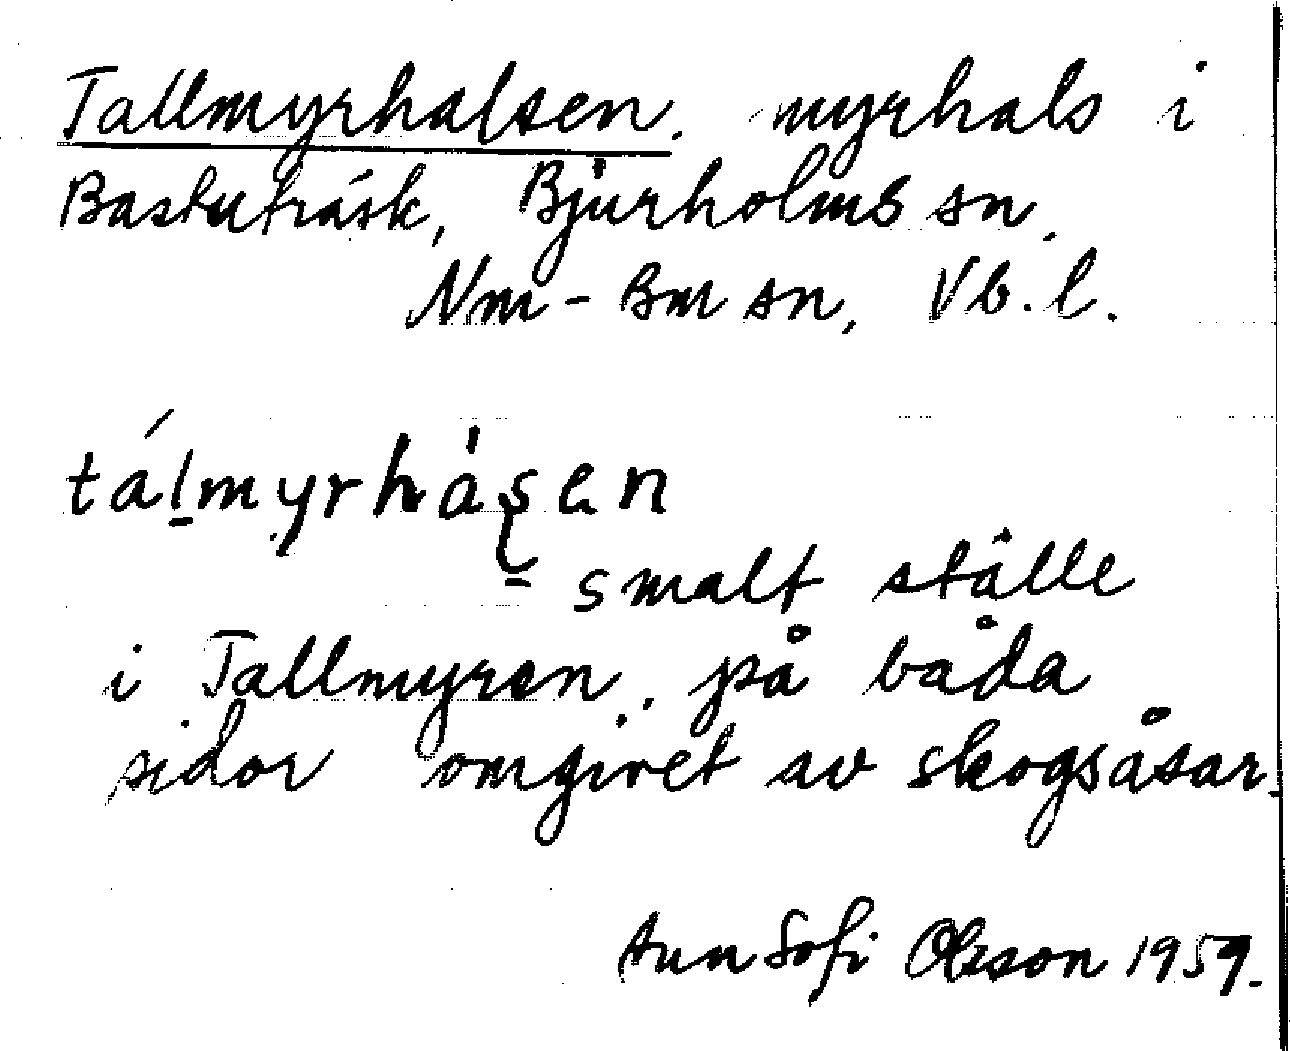 Tallmyrhalsen. myrhals i
Bastuträsk, Bjurholms sn.
Nm-Bm sn, Vb.l.
tálmyrhàsen
smalt ställe
i Tallmyren, på båda
sidor omgivet av skogsåsar.
Ann Sofi Olsson 1959.